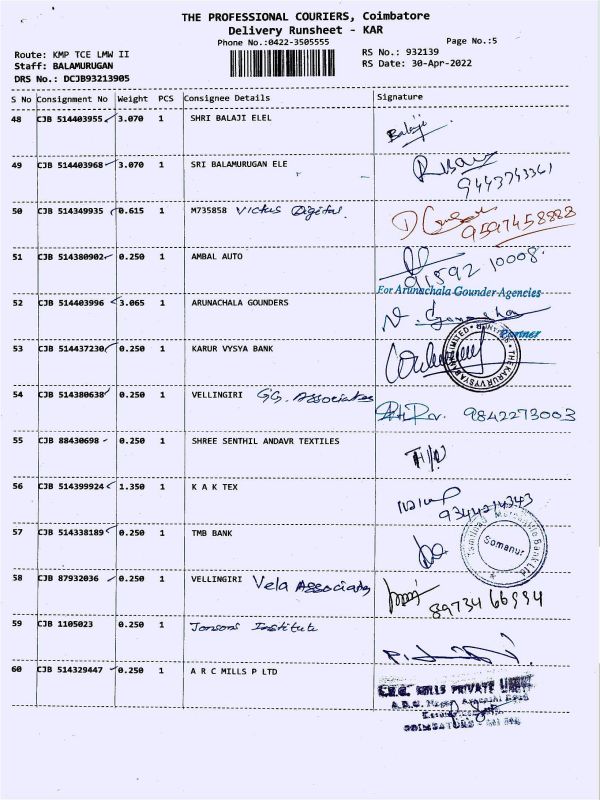 THE PROFESSIONAL COURIERS, Coimbatore
Delivery Runsheet - KAR
Phone No.:0422-3505555
Page No.:5
Route: KMP TCE LMW II
RS No.: 932139
Staff: BALAMURUGAN
RS Date: 30-Apr-2022
DRS No.: DCJB93213905
S No Consignment No Weight PCS Consignee Details Signature
48 CJB 514403955 3.070 1 SHRI BALAJI ELEL Balaji
49 CJB 514403968 3.070 1 SRI BALAMURUGAN ELE
9443743361
50 CJB 514349935 0.615 1 M735858 Victus Digital.
9597458888
51 CJB 514380902 0.250 1 AMBAL AUTO
91592 10008
For Arunachala Gounder Agencies
52 CJB 514403996 3.065 1 ARUNACHALA GOUNDERS
Partner
53 CJB 514437230 0.250 1 KARUR VYSYA BANK
THE KARUR VYSYA BANK LIMITED
54 CJB 514380638 0.250 1 VELLINGIRI GG. Associates
9842273003
55 CJB 88430698 0.250 1 SHREE SENTHIL ANDAVR TEXTILES
56 CJB 514399924 1.350 1 K A K TEX
9344214343
57 CJB 514338189 0.250 1 TMB BANK
Tamilnad Mercantile Bank Ltd
Somanur
58 CJB 87932036 0.250 1 VELLINGIRI Vela Associates
8973466994
59 CJB 1105023 0.250 1 Jonsons Institute
60 CJB 514329447 0.250 1 A R C MILLS P LTD
MILLS PRIVATE LIMITED
COIMBATORE